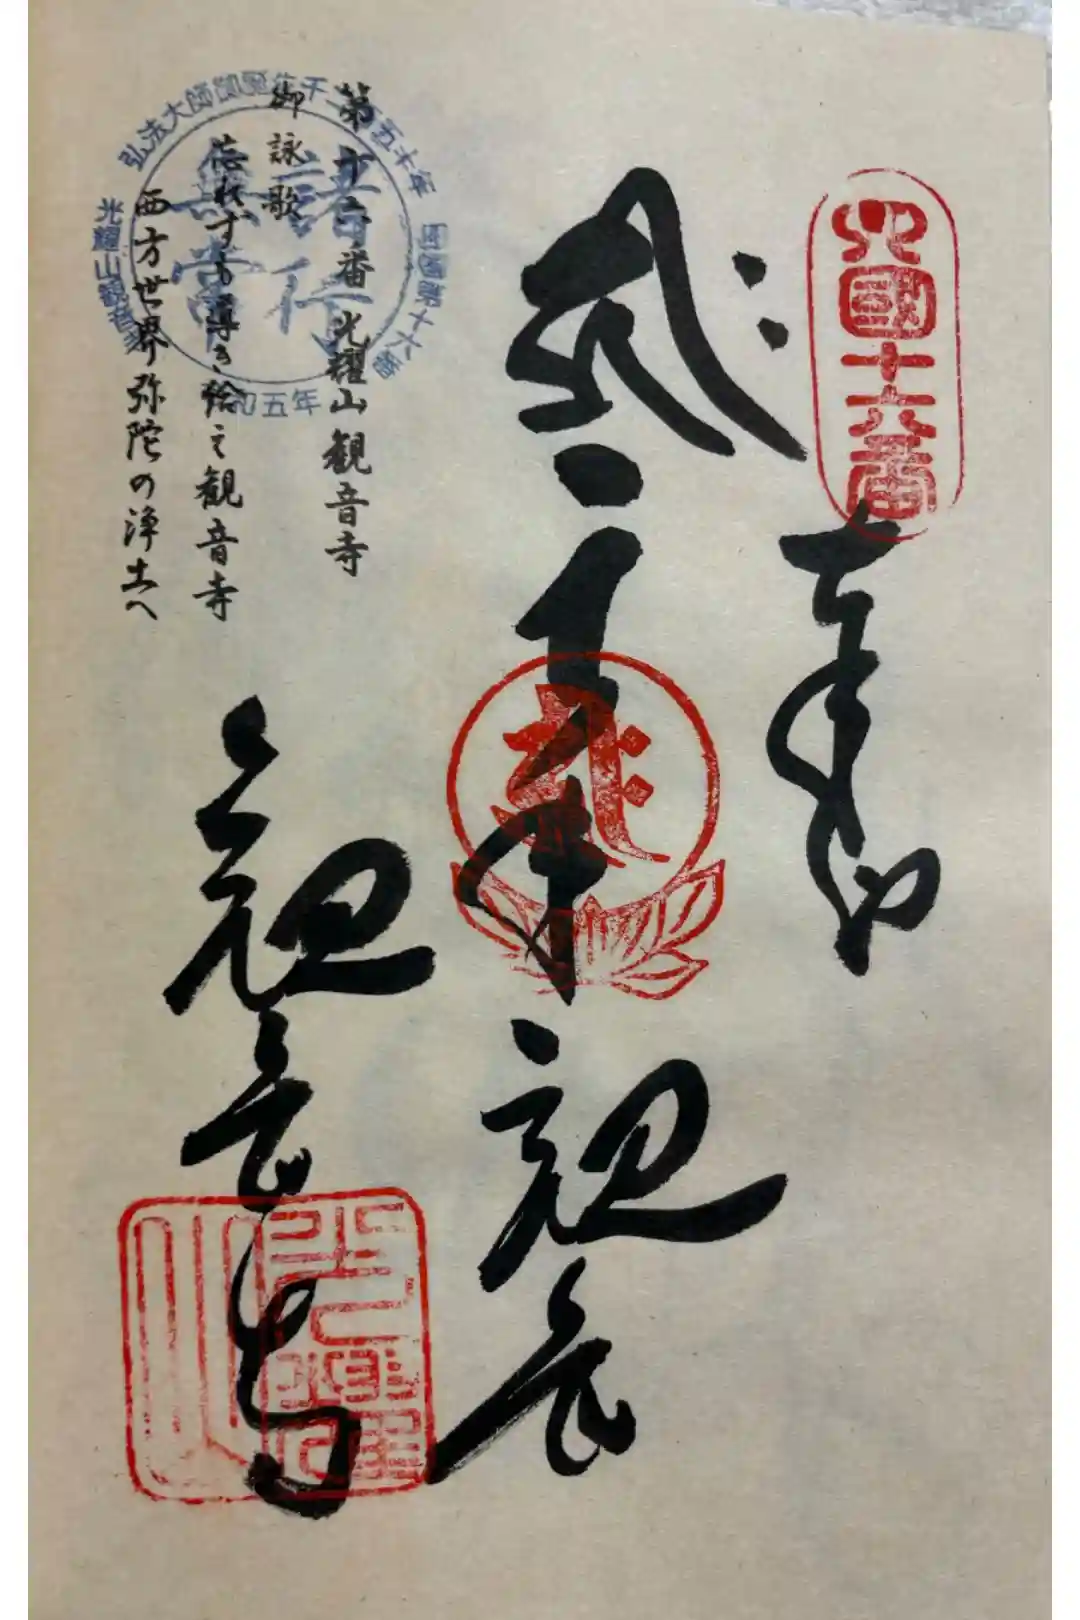 四國十六番
奉納
千手観音
観音寺
第十六番 光耀山観音寺
御詠歌
忘れずも導き給え観音寺
西方世界弥陀の浄土へ
弘法大師御誕生千二百五十年
四國第十六番
光耀山観音寺
令和五年
光耀山